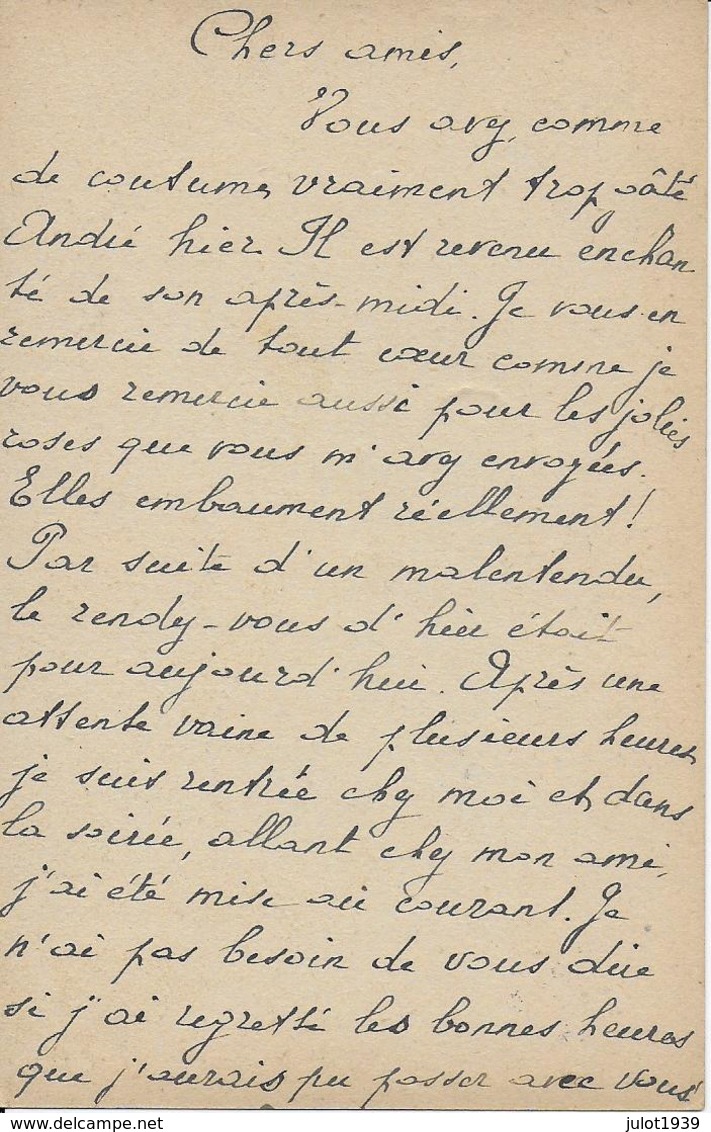 Chers amis,
Vous avez, comme
de coutume, vraiment trop gâté
André hier. Il est revenu enchan
té de son après-midi. Je vous en
remercie de tout cœur comme je
vous remercie aussi pour les jolies
roses que vous m'avez envoyées.
Elles embaument réellement!
Par suite d'un malentendu,
le rendez-vous d'hier était
pour aujourd'hui. Après une
attente vaine de plusieurs heures,
je suis rentrée chez moi et, dans
la soirée, allant chez mon ami,
j'ai été mise au courant. Je
n'ai pas besoin de vous dire
si j'ai regretté les bonnes heures
que j'aurais pu passer avec vous
julot1939